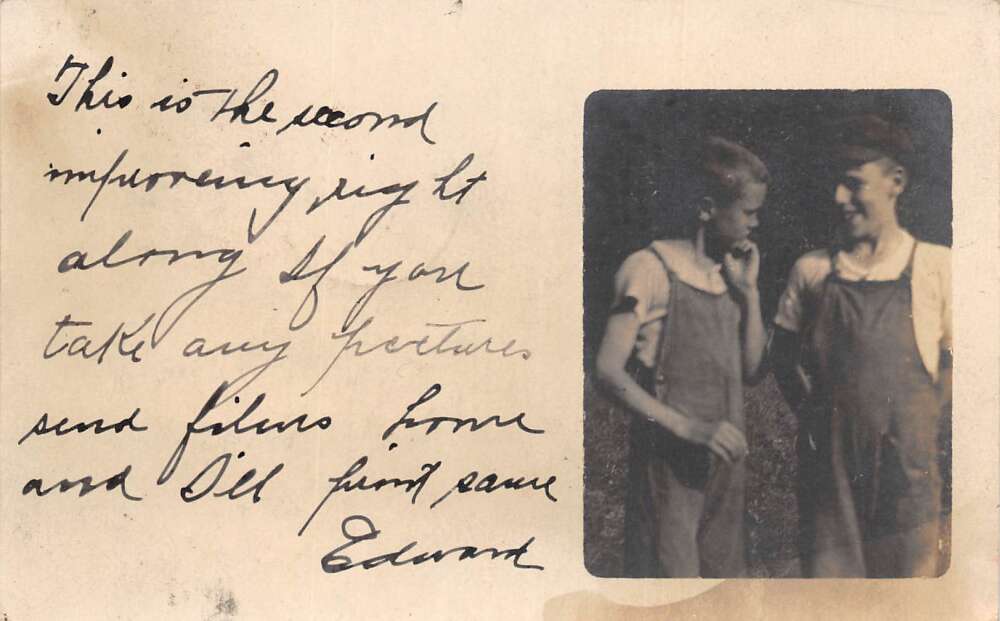 This is the second
improveing right
along If you
take any pictures
send films home
and I'll print same
Edward